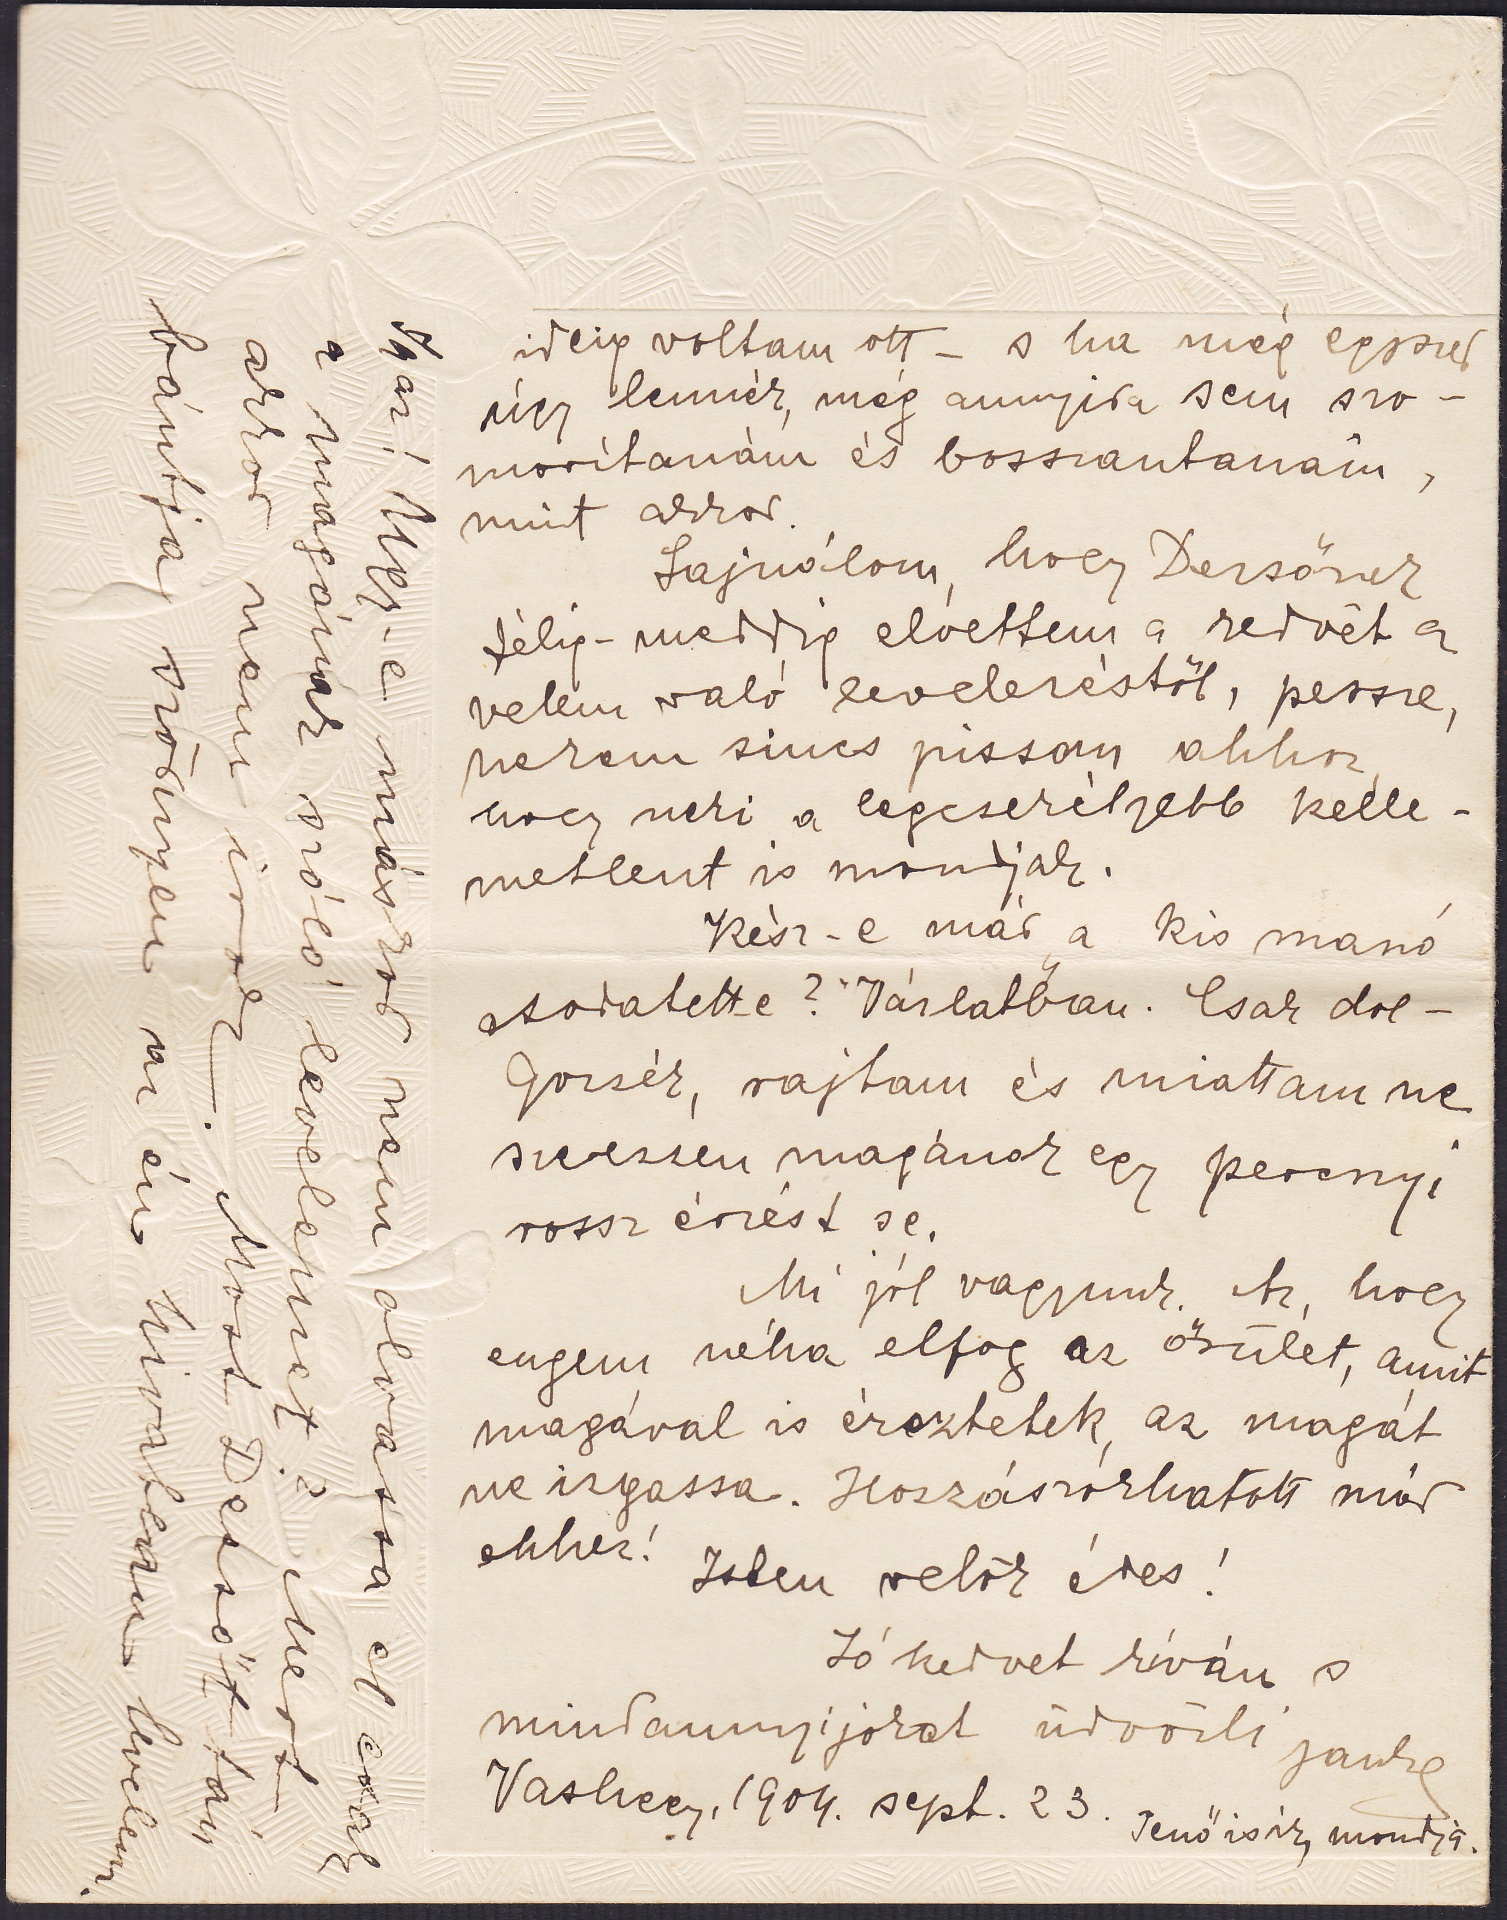 ideig voltam ott – s ha még egyszer
úgy lennék, még annyira sem szo-
morítanám és bosszantanám,
mint akkor.
Sajnálom, hogy Dezsőnek
félig-meddig elvettem a kedvét a
velem való levelezéstől, persze,
nekem sincs pisszom ahhoz,
hogy neki a legcsekélyebb kelle-
metlent is mondjak.
Kész-e már a kis manó
csodatette? Várlatban. Csak dol-
gozzék, rajtam és miattam ne
szerezzen magának egy percnyi
rossz érzést se.
Mi jól vagyunk. Az, hogy
engem néha elfog az őrület, amit
magával is éreztetek, az magát
ne izgassa. Hozzászokhatott már
ehhez! Isten velök édes!
Jó kedvet kíván s
mindannyijokat üdvözli Janka
Vashegy, 1904. sept. 23. Jenő is ír, mondja.
Igaz! Ugy-e máskor nem olvassa el csak
a magának szóló levelemet? Mert
akkor nem irok –. Most Dezsőt tán
bántja szörnyen az én hivatlan levelem.